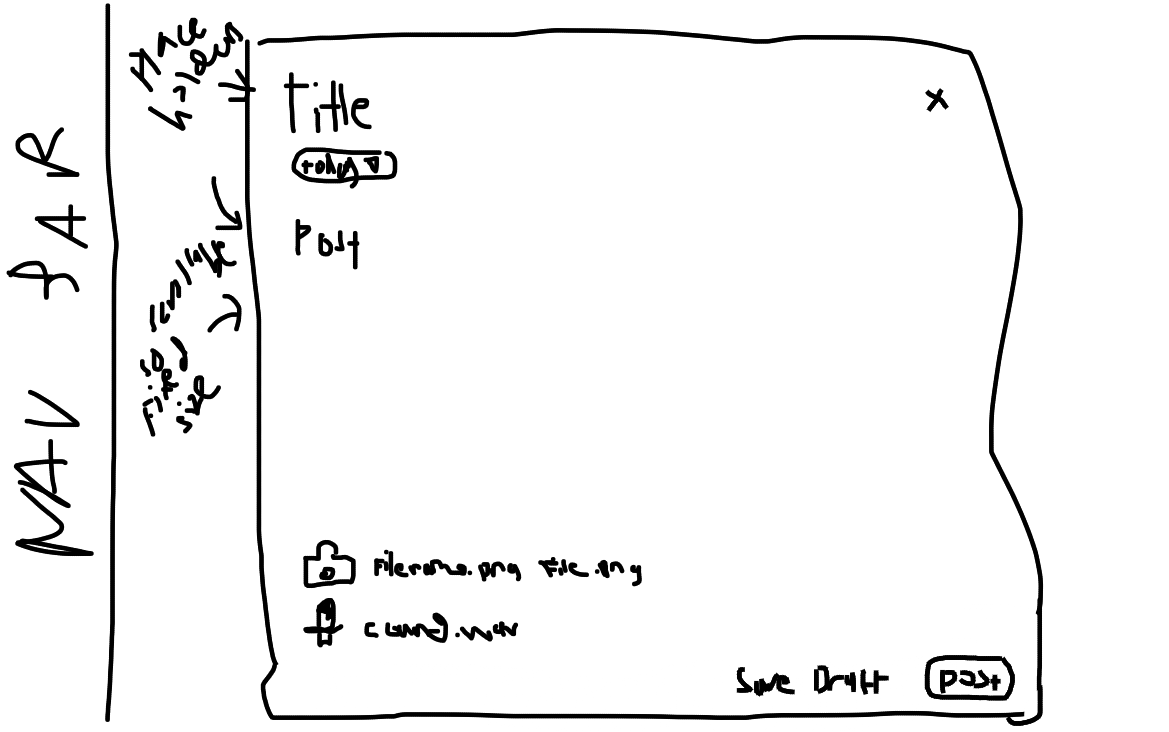 NAV BAR
Place
holders
Title
x
today
Post
scrollable
so
fixed
size
Filename.png File.png
sound.wav
Save Draft
post